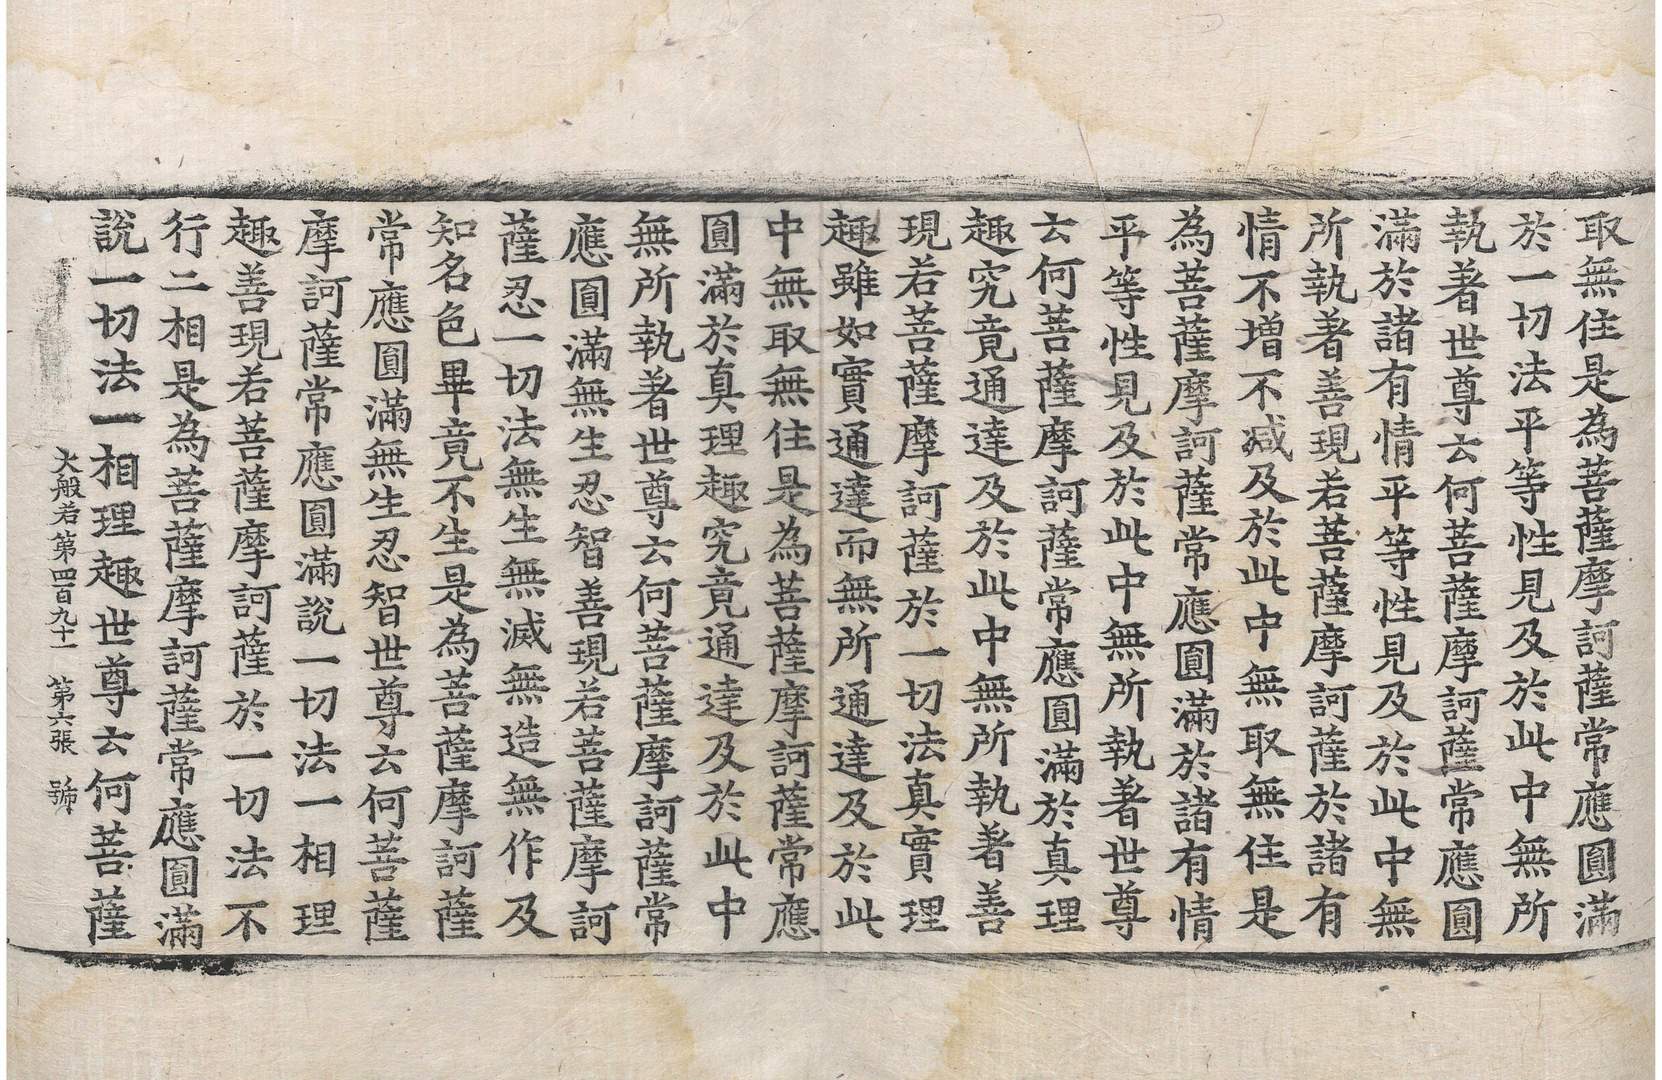 取無住是為菩薩摩訶薩常應圓滿
於一切法平等性見及於此中無所
執著世尊云何菩薩摩訶薩常應圓
滿於諸有情平等性見及於此中無
所執著善現若菩薩摩訶薩於諸有
情不增不減及於此中無取無住是
為菩薩摩訶薩常應圓滿於諸有情
平等性見及於此中無所執著世尊
云何菩薩摩訶薩常應圓滿於真理
趣究竟通達及於此中無所執著善
現若菩薩摩訶薩於一切法真實理
趣雖如實通達而無所通達及於此
中無取無住是為菩薩摩訶薩常應
圓滿於真理趣究竟通達及於此中
無所執著世尊云何菩薩摩訶薩常
應圓滿無生忍智善現若菩薩摩訶
薩忍一切法無生無滅無造無作及
知名色畢竟不生是為菩薩摩訶薩
常應圓滿無生忍智世尊云何菩薩
摩訶薩常應圓滿說一切法一相理
趣善現若菩薩摩訶薩於一切法不
行二相是為菩薩摩訶薩常應圓滿
說一切法一相理趣世尊云何菩薩
大般若第四百九十一 第六張 號